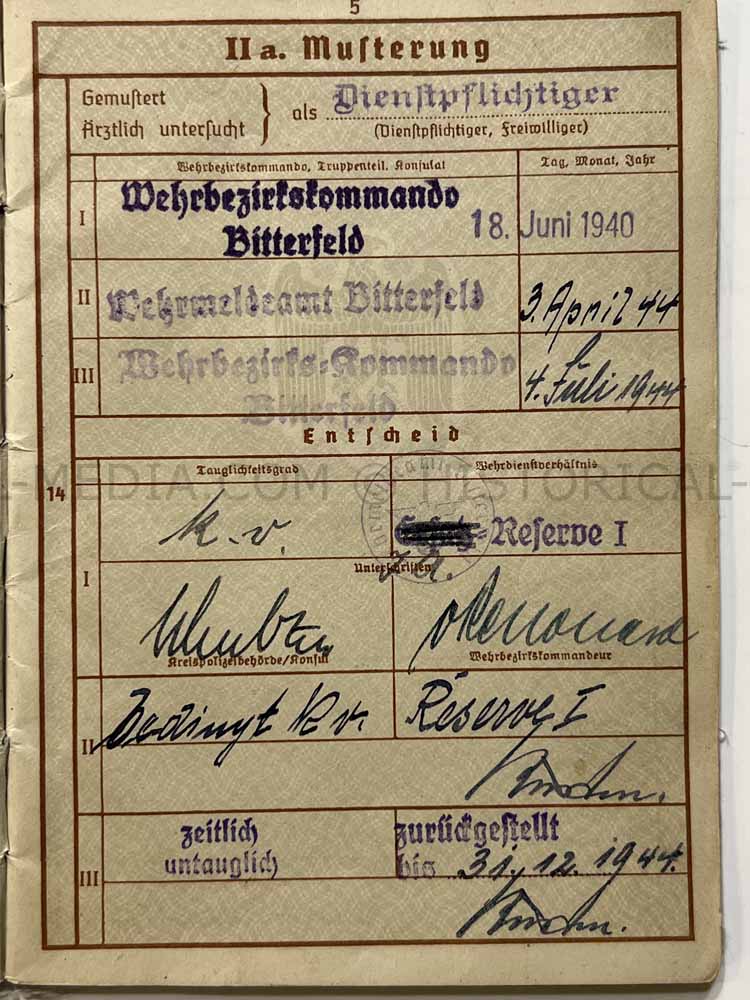 5
II a. Musterung
Gemustert
Ärztlich untersucht } als Dienstpflichtiger
(Dienstpflichtiger, Freiwilliger)
Wehrbezirkskommando, Truppenteil, Konsulat
Tag, Monat, Jahr
I
Wehrbezirkskommando
Bitterfeld
18. Juni 1940
II
Wehrmeldeamt Bitterfeld
3. April 44
III
Wehrbezirks-Kommando
Bitterfeld
4. Juli 1944
Entscheid
14
Tauglichkeitsgrad
Wehrdienstverhältnis
-MEDIA.COM © HISTORICAL-
I
k. v.
Reserve I
Unterschriften
Kreispolizeibehörde/Konsul
Wehrbezirkskommandeur
II
Bedingt kv.
Reserve I
III
zeitlich
untauglich
zurückgestellt
bis 31. 12. 1944.